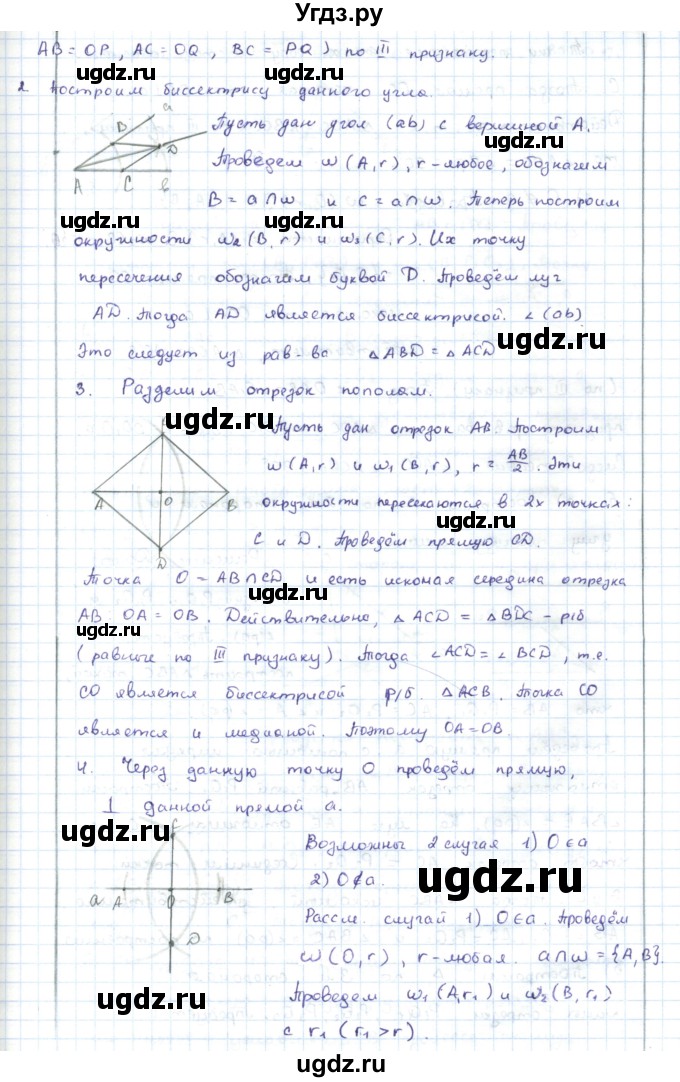 Угдз.ру
AB = OP, AC = OQ, BC = PQ) по III признаку.
ugdz.ru ugdz.ru
2 Построим биссектрису данного угла.
a
D
D
A C b
Пусть дан угол (ab) с вершиной A.
Проведем w (A, r), r - любое, обозначим
B = a∩w и C = a∩w. Теперь построим
ugdz.ru ugdz.ru
окружности w₂ (B, r) и w₃ (C, r). Их точку
пересечения обозначим буквой D. Проведём луч
AD. Тогда AD является биссектрисой. ∠(ab)
ugdz.ru
Это следует из рав-ва △ABD = △ACD
3. Разделим отрезок пополам.
ugdz.ru
A O B
D
Пусть дан отрезок AB. Построим
w (A, r) и w₁ (B, r), r = AB/2. Эти
окружности пересекаются в 2х точках:
ugdz.ru
C и D. Проведём прямую CD.
Точка O = AB∩CD и есть искомая середина отрезка
ugdz.ru
AB, OA = OB. Действительно, △ACD = △BDC - р/б
ugdz.ru
(равные по III признаку). Тогда ∠ACD = ∠BCD, т.е.
CO является биссектрисой р/б. △ACB. Точка CO
является и медианой. Поэтому OA = OB.
4. Через данную точку O проведём прямую,
⊥ данной прямой a.
ugdz.ru
C
a A O B
D
Возможны 2 случая 1) O∈a
2) O∉a.
ugdz.ru
Рассм. случай 1) O∈a. Проведём
w (O, r), r - любая. a∩w = {A, B}.
ugdz.ru
Проведем w₁ (A, r₁) и w₂ (B, r₁)
с r₁ (r₁ > r).
ugdz.ru
ugdz.ru